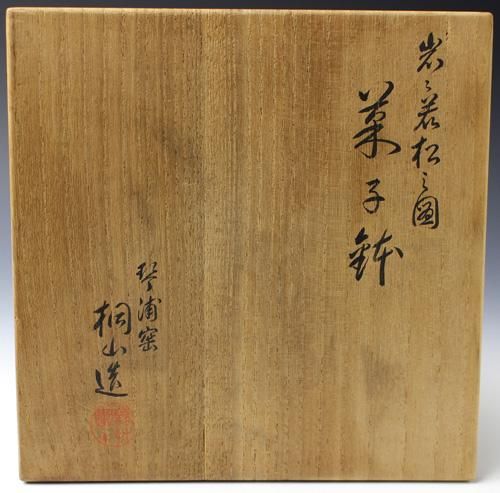 岩ニ若松之図
菓子鉢
琴浦窯
桐山造